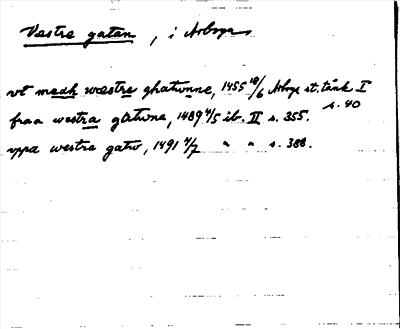 Vestre gatan, i Arboga
vt medh wæstre ghatwnne, 1455 18/6 Arboga st. tänk I s. 40
fraa westra gatwne, 1489 4/5 ib. II s. 355.
vppa westre gatw, 1491 4/7 " " s. 388.